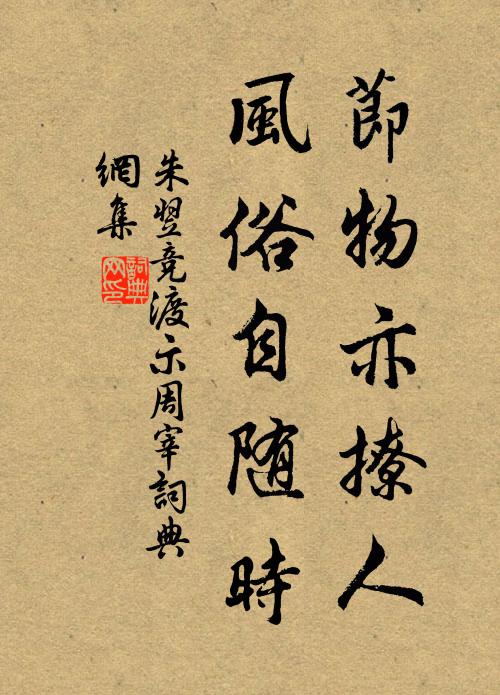 節物亦撩人
風俗自随時
朱翌竞渡示周宰詞典
網集
詞典
网印